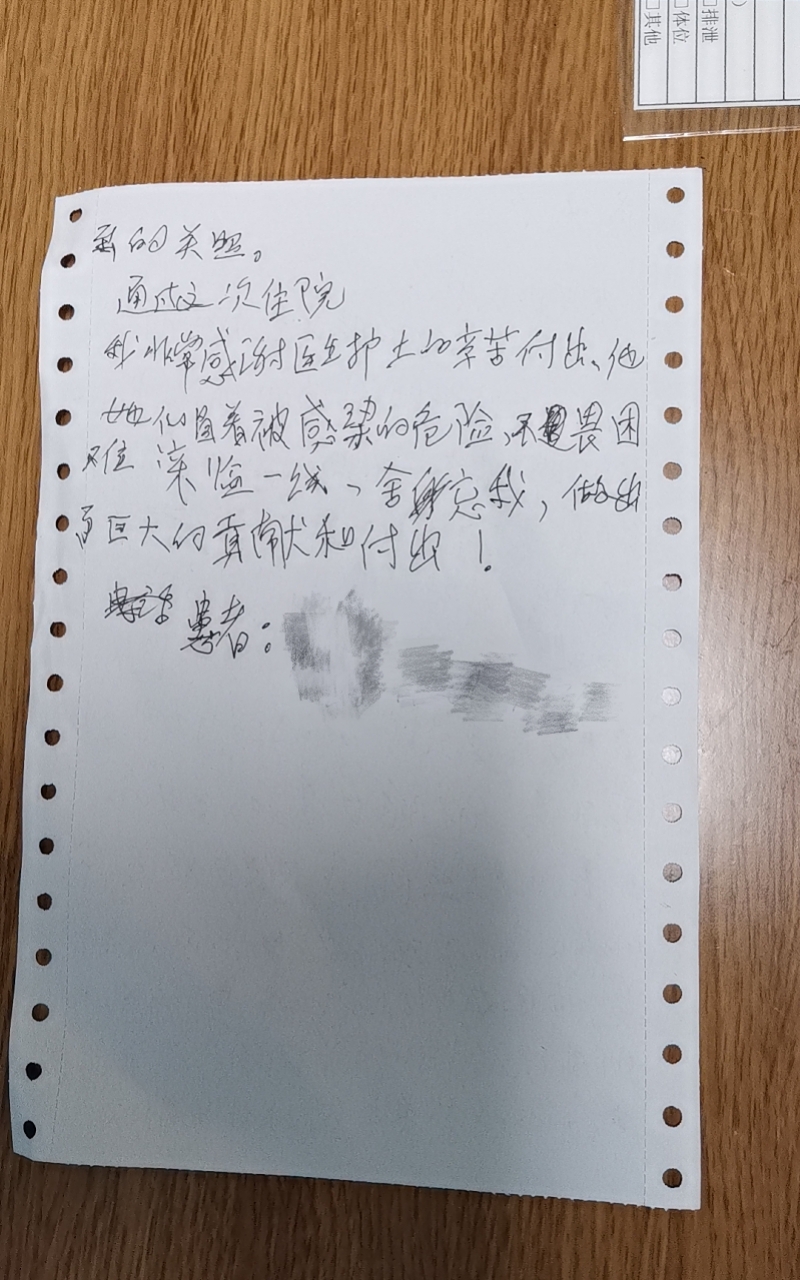 □排泄
□体位
□其他
的关照。
通过这次住院
我非常感谢医生护士的辛苦付出、他
她们冒着被感染的危险,不畏困
难 深临一线、舍身忘我,做出
了巨大的贡献和付出!
患者: